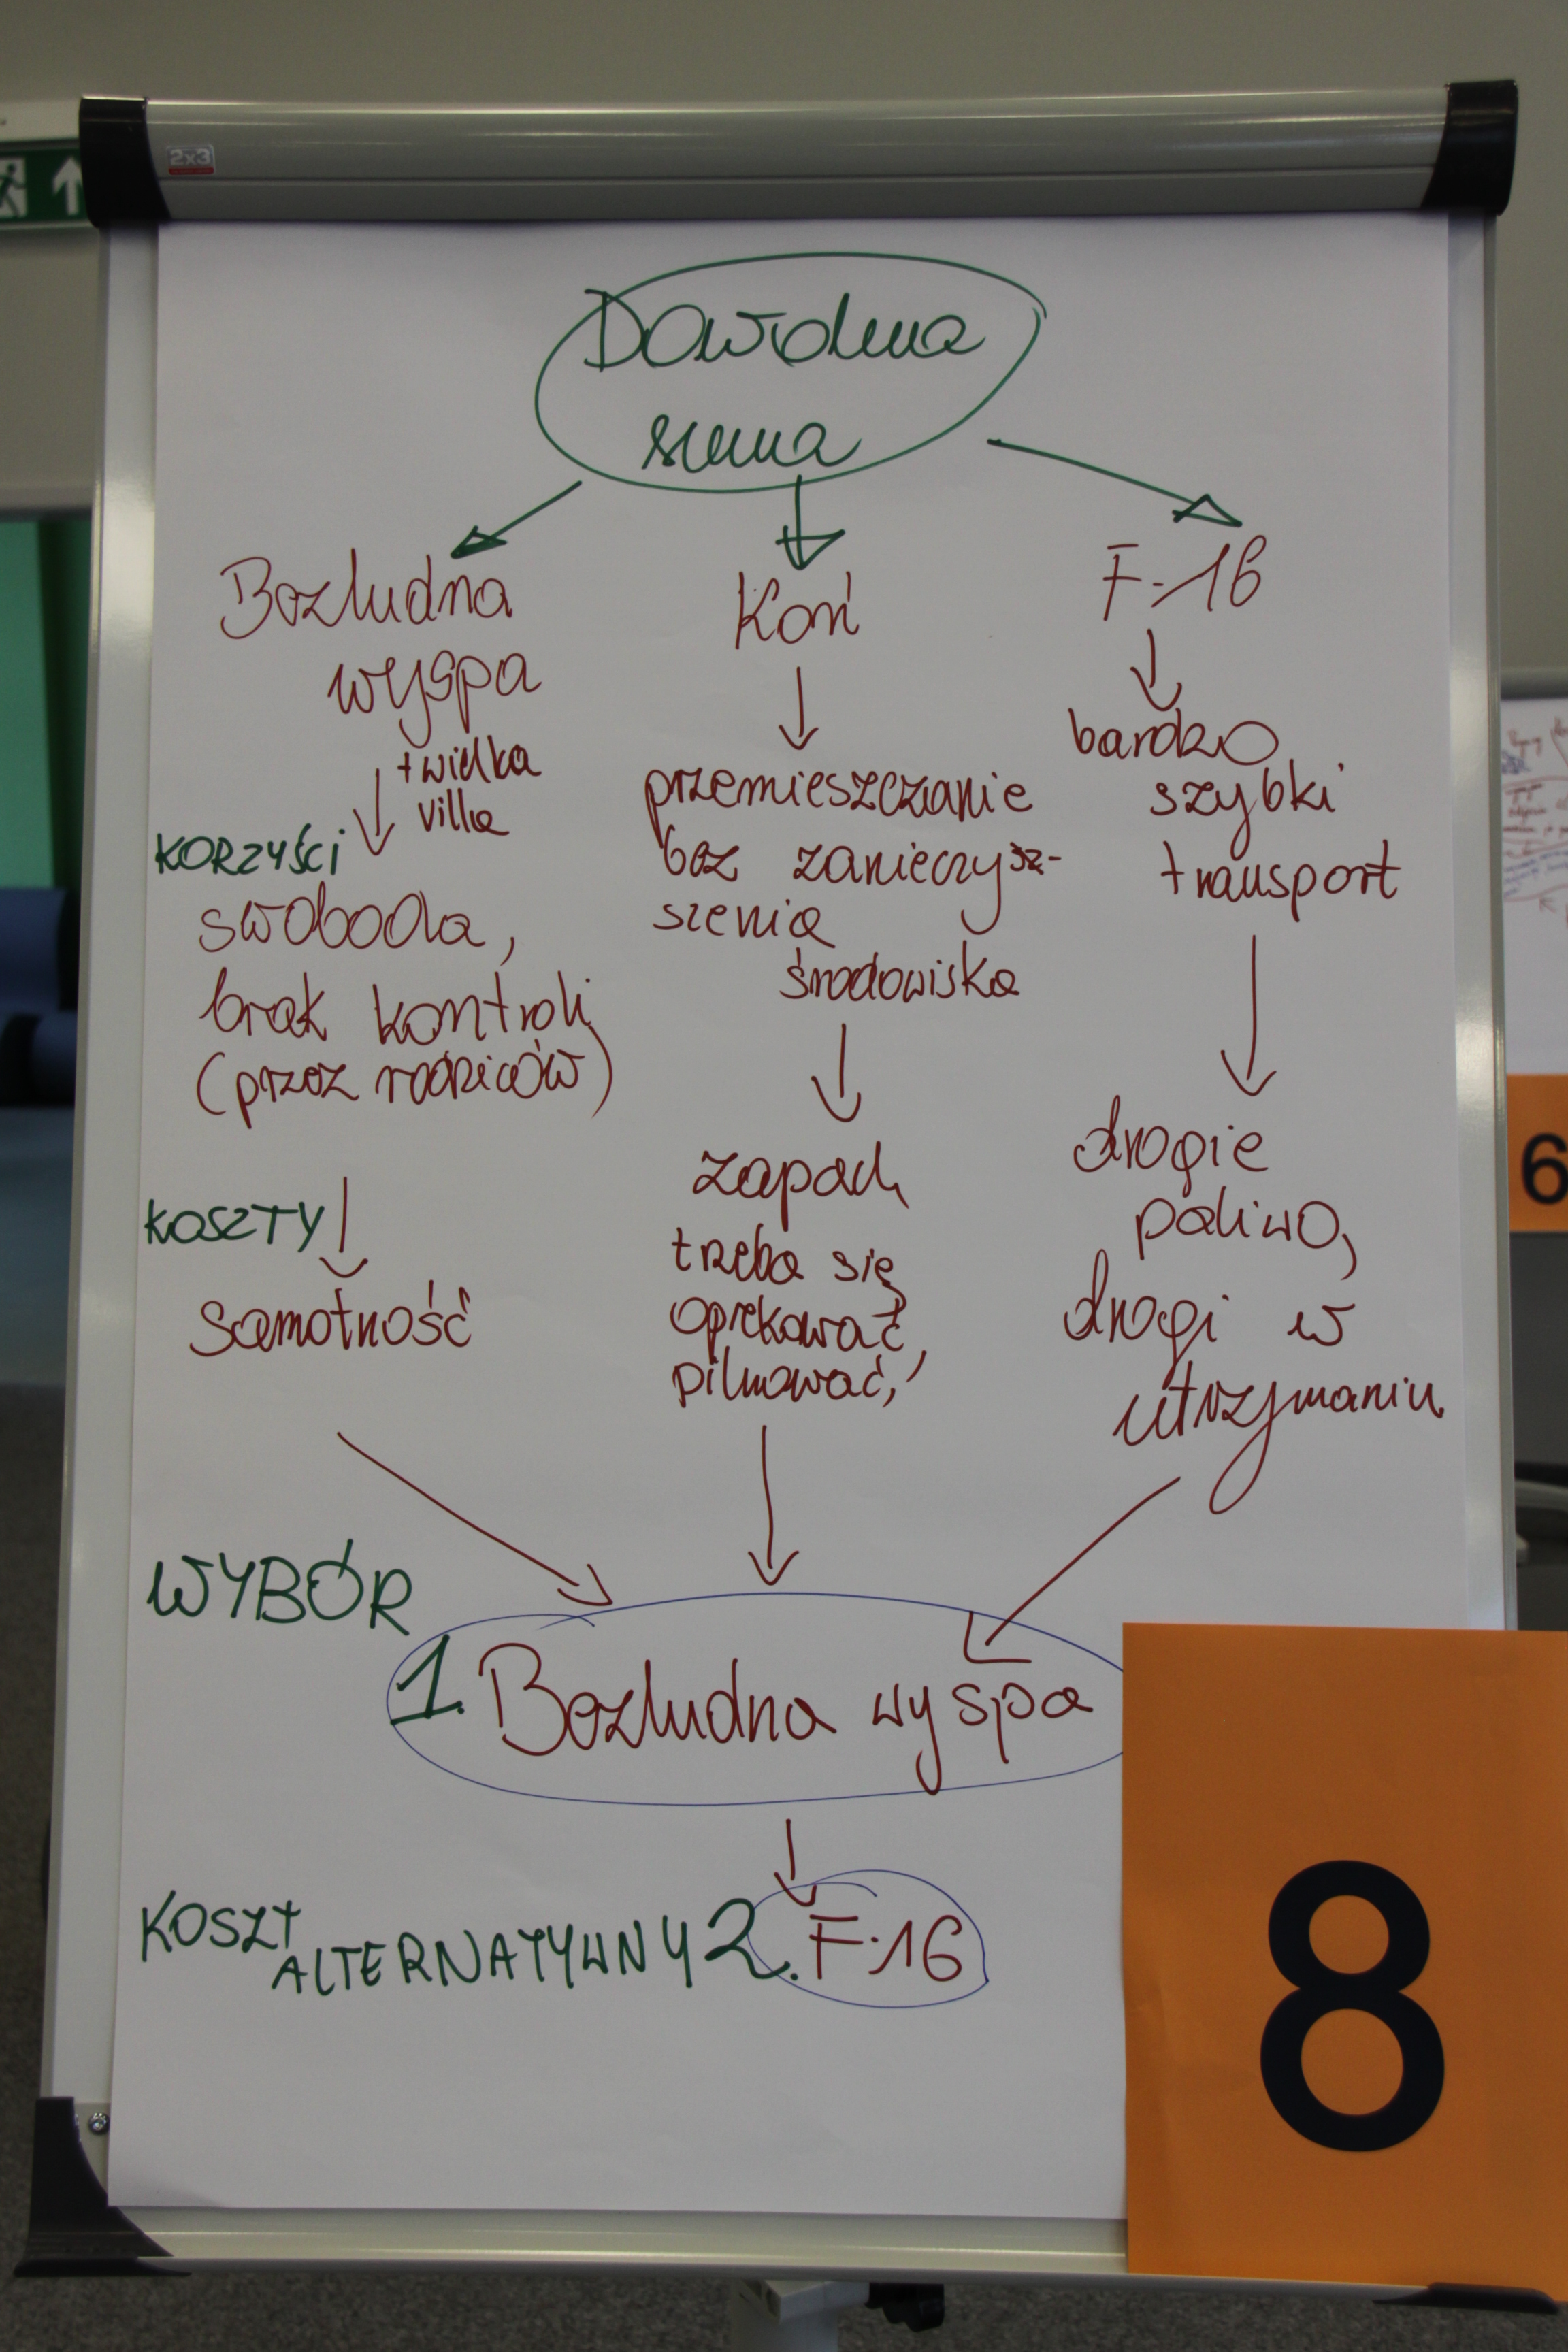 2x3
Dowolna
suma
Bezludna
wyspa
+ wielka
villa
KORZYŚCI
swoboda,
brak kontroli
(przez rodziców)
KOSZTY
samotność
Koń
przemieszczanie
bez zanieczysz-
szenia
środowiska
zapach
trzeba się
opiekować,
pilnować,
F-16
bardzo
szybki
transport
drogie
paliwo,
drogi w
utrzymaniu
WYBÓR
1. Bezludna wyspa
KOSZT
ALTERNATYWNY 2. F-16
8
6